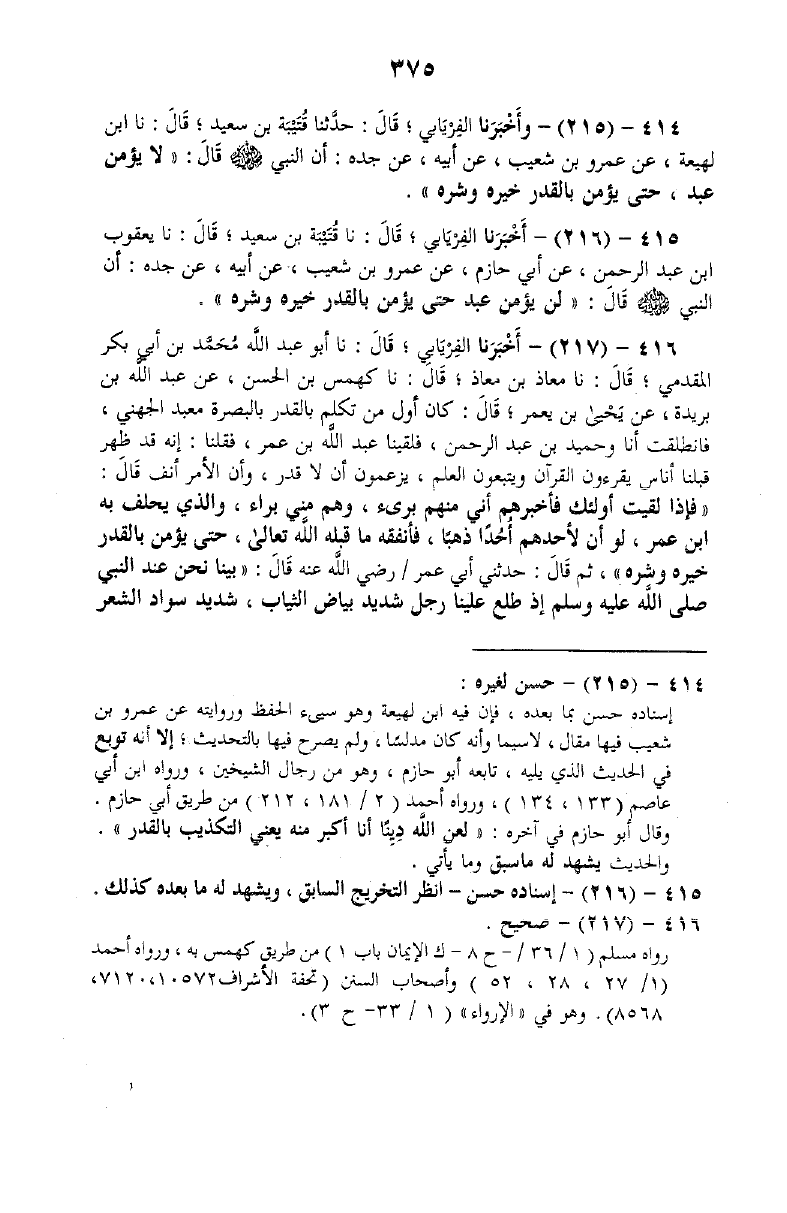 ٣٧٥
٤١٤ - (٢١٥) - وأَخْبَرَنا الفِرْيَابي ؛ قَالَ : حدَّثنا قُتَيْبَة بن سعيد ؛ قَالَ : نا ابن
لهيعة ، عن عمرو بن شعيب ، عن أبيه ، عن جده : أن النبي ﷺ قَالَ : « لا يؤمن
عبد ، حتى يؤمن بالقدر خيره وشره » .
٤١٥ - (٢١٦) - أَخْبَرَنا الفِرْيَابي ؛ قَالَ : نا قُتَيْبَة بن سعيد ؛ قَالَ : نا يعقوب
ابن عبد الرحمن ، عن أبي حازم ، عن عمرو بن شعيب ، عن أبيه ، عن جده : أن
النبي ﷺ قَالَ : « لن يؤمن عبد حتى يؤمن بالقدر خيره وشره » .
٤١٦ - (٢١٧) - أَخْبَرَنا الفِرْيَابي ؛ قَالَ : نا أبو عبد اللَّه مُحَمَّد بن أبي بكر
المقدمي ؛ قَالَ : نا معاذ بن معاذ ؛ قَالَ : نا كهمس بن الحسن ، عن عبد اللَّه بن
بريدة ، عن يَحْيىٰ بن يعمر ؛ قَالَ : كان أول من تكلم بالقدر بالبصرة معبد الجهني ،
فانطلقت أنا وحميد بن عبد الرحمن ، فلقينا عبد اللَّه بن عمر ، فقلنا : إنه قد ظهر
قبلنا أناس يقرءون القرآن ويتبعون العلم ، يزعمون أن لا قدر ، وأن الأمر أنف قَالَ :
« فإذا لقيت أولئك فأخبرهم أني منهم برىء ، وهم مني براء ، والذي يحلف به
ابن عمر ، لو أن لأحدهم أُحُدًا ذهبًا ، فأنفقه ما قبله اللَّه تعالىٰ ، حتى يؤمن بالقدر
خيره وشره » ، ثم قَالَ : حدثني أبي عمر / رضي اللَّه عنه قَالَ : « بينا نحن عند النبي
صلى اللَّه عليه وسلم إذ طلع علينا رجل شديد بياض الثياب ، شديد سواد الشعر
٤١٤ - (٢١٥) - حسن لغيره :
إسناده حسن بما بعده ، فإن فيه ابن لهيعة وهو سيىء الحفظ وروايته عن عمرو بن
شعيب فيها مقال ، لاسيما وأنه كان مدلسًا ، ولم يصرح فيها بالتحديث ؛ إلا أنه توبع
في الحديث الذي يليه ، تابعه أبو حازم ، وهو من رجال الشيخين ، ورواه ابن أبي
عاصم ( ١٣٣ ، ١٣٤ ) ، ورواه أحمد ( ٢ / ١٨١ ، ٢١٢ ) من طريق أبي حازم .
وقال أبو حازم في آخره : « لعن اللَّه دِينًا أنا أكبر منه يعني التكذيب بالقدر » .
والحديث يشهد له ماسبق وما يأتي .
٤١٥ - (٢١٦) - إسناده حسن - انظر التخريج السابق ، ويشهد له ما بعده كذلك .
٤١٦ - (٢١٧) - صحيح .
رواه مسلم ( ١ / ٣٦ /- ح ٨ - ك الإيمان باب ١ ) من طريق كهمس به ، ورواه أحمد
(١/ ٢٧ ، ٢٨ ، ٥٢ ) وأصحاب السنن (تحفة الأشراف١٠٥٧٢، ٧١٢٠،
٨٥٦٨). وهو في «الإرواء» ( ١ / ٣٣- ح ٣).